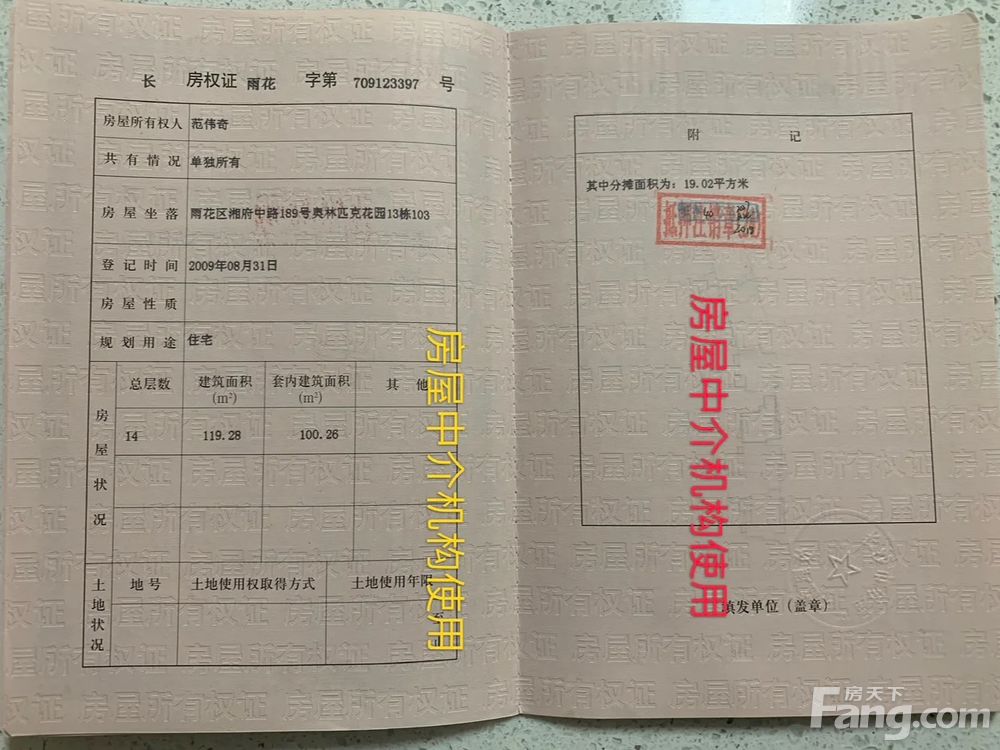 长 房权证 雨花 字第 709123397 号
房屋所有权人 范伟奇
共有情况 单独所有
房屋坐落 雨花区湘府中路189号奥林匹克花园13栋103
登记时间 2009年08月31日
房屋性质
规划用途 住宅
房屋状况
总层数 建筑面积(m²) 套内建筑面积(m²) 其他
14 119.28 100.26
土地状况
地号 土地使用权取得方式 土地使用年限
至
止
房屋中介机构使用
附记
其中分摊面积为: 19.02平方米
房屋中介机构使用
填发单位(盖章)
房天下
Fang.com